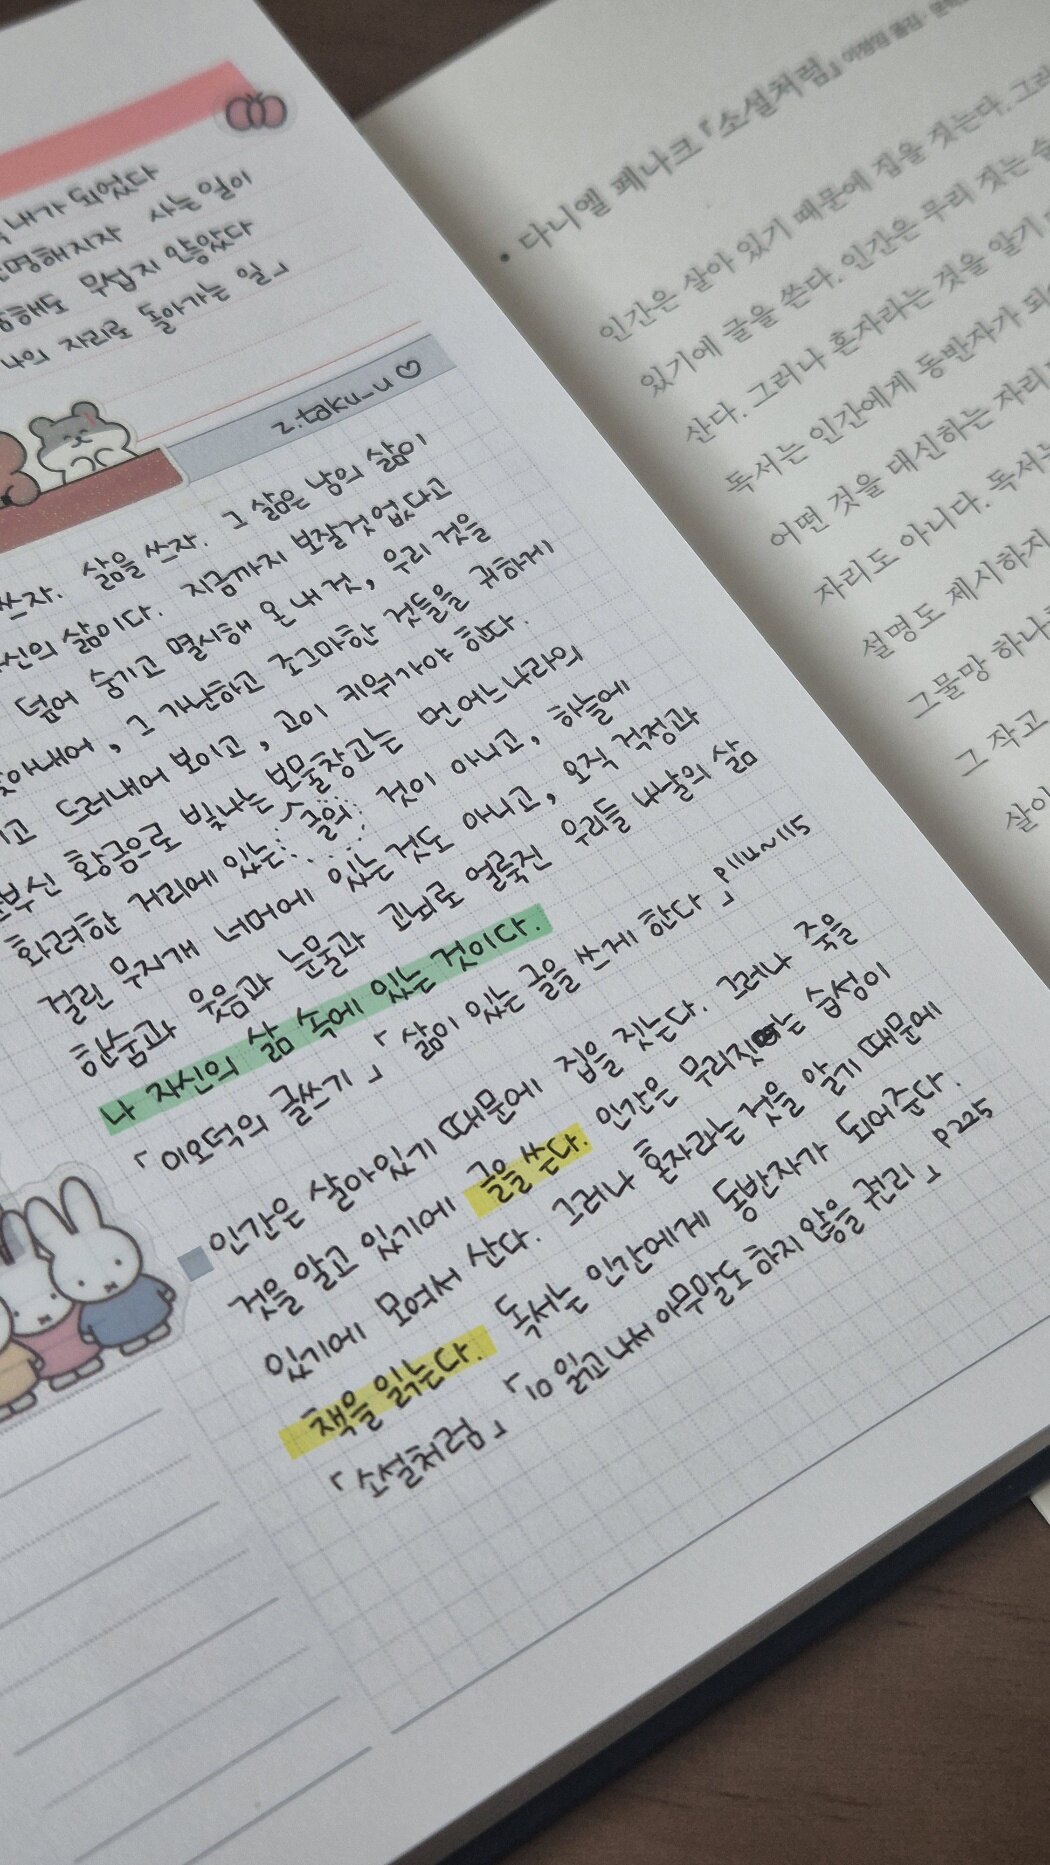 내가 되었다
명해지자 사는 일이
해도 무섭지 않았다
나의 자리로 돌아가는 일」
z.taku_u♡
쓰자. 삶을 쓰자. 그 삶은 남의 삶이
신의 삶이다. 지금까지 보잘것없다고
덮어 숨기고 멸시해 온 내 것, 우리 것을
찾아내어, 그 가난하고 조그마한 것들을 귀하게
드러내어 보이고, 고이 키워가야 한다.
부신 황금으로 빛나는 보물창고는 먼 어느 나라의
화려한 거리에 있는 글의 것이 아니고, 하늘에
걸린 무지개 너머에 있는 것도 아니고, 오직 걱정과
한숨과 웃음과 눈물과 고뇌로 얼룩진 우리들 나날의 삶
나 자신의 삶 속에 있는 것이다.
「이오덕의 글쓰기」 「삶이 있는 글을 쓰게 한다」 p114~115
인간은 살아있기 때문에 집을 짓는다. 그러나 죽을
것을 알고 있기에 글을 쓴다. 인간은 무리짓는 습성이
있기에 모여서 산다. 그러나 혼자라는 것을 알기 때문에
책을 읽는다. 독서는 인간에게 동반자가 되어준다.
「소설처럼」 「10 읽고 나서 아무말도 하지 않을 권리」 p225
• 다니엘 페나크 『소설처럼』 이정임 옮김·
인간은 살아 있기 때문에 집을 짓는다. 그러
있기에 글을 쓴다. 인간은 무리 짓는 습
산다. 그러나 혼자라는 것을 알기
독서는 인간에게 동반자가 되
어떤 것을 대신하는 자리
자리도 아니다. 독서는
설명도 제시하지
그물망 하나
그 작고
살아